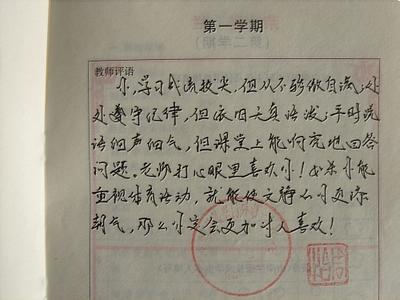 第一学期
教师评语
你，学习成绩拔尖，但从不骄傲自满；处
处遵守纪律，但依旧天真活泼；平时说
话细声细气，但课堂上能响亮地回答
问题。老师打心眼里喜欢你！如果你能
重视体育活动，就能使文静的你更添
朝气，那么你定会更加讨人喜欢！